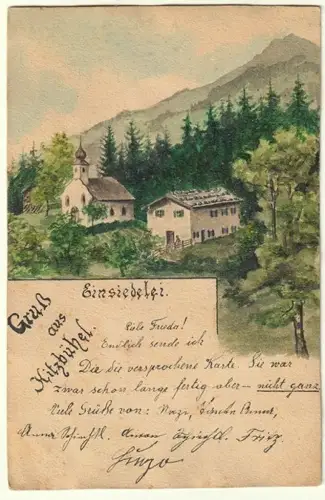 Einsiedelei.
Gruß
aus
Kitzbühel.
Lële Frieda!
Endlich sende ich
Dir die versprochene Karte. Sie war
zwar schon lange fertig aber – nicht ganz
Viele Grüße von:
Anna Fritz
Hugo